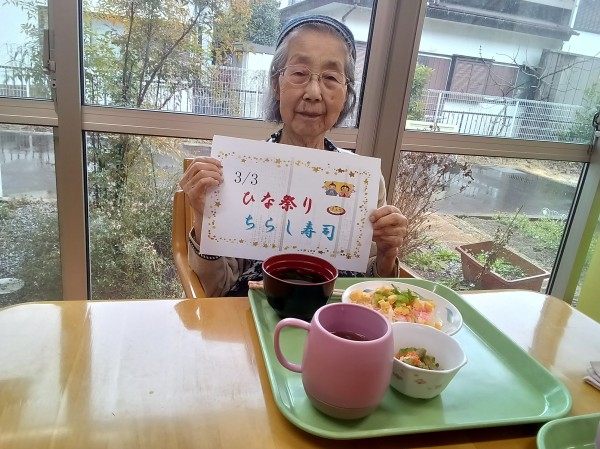 3/3
ひな祭り
ちらし寿司